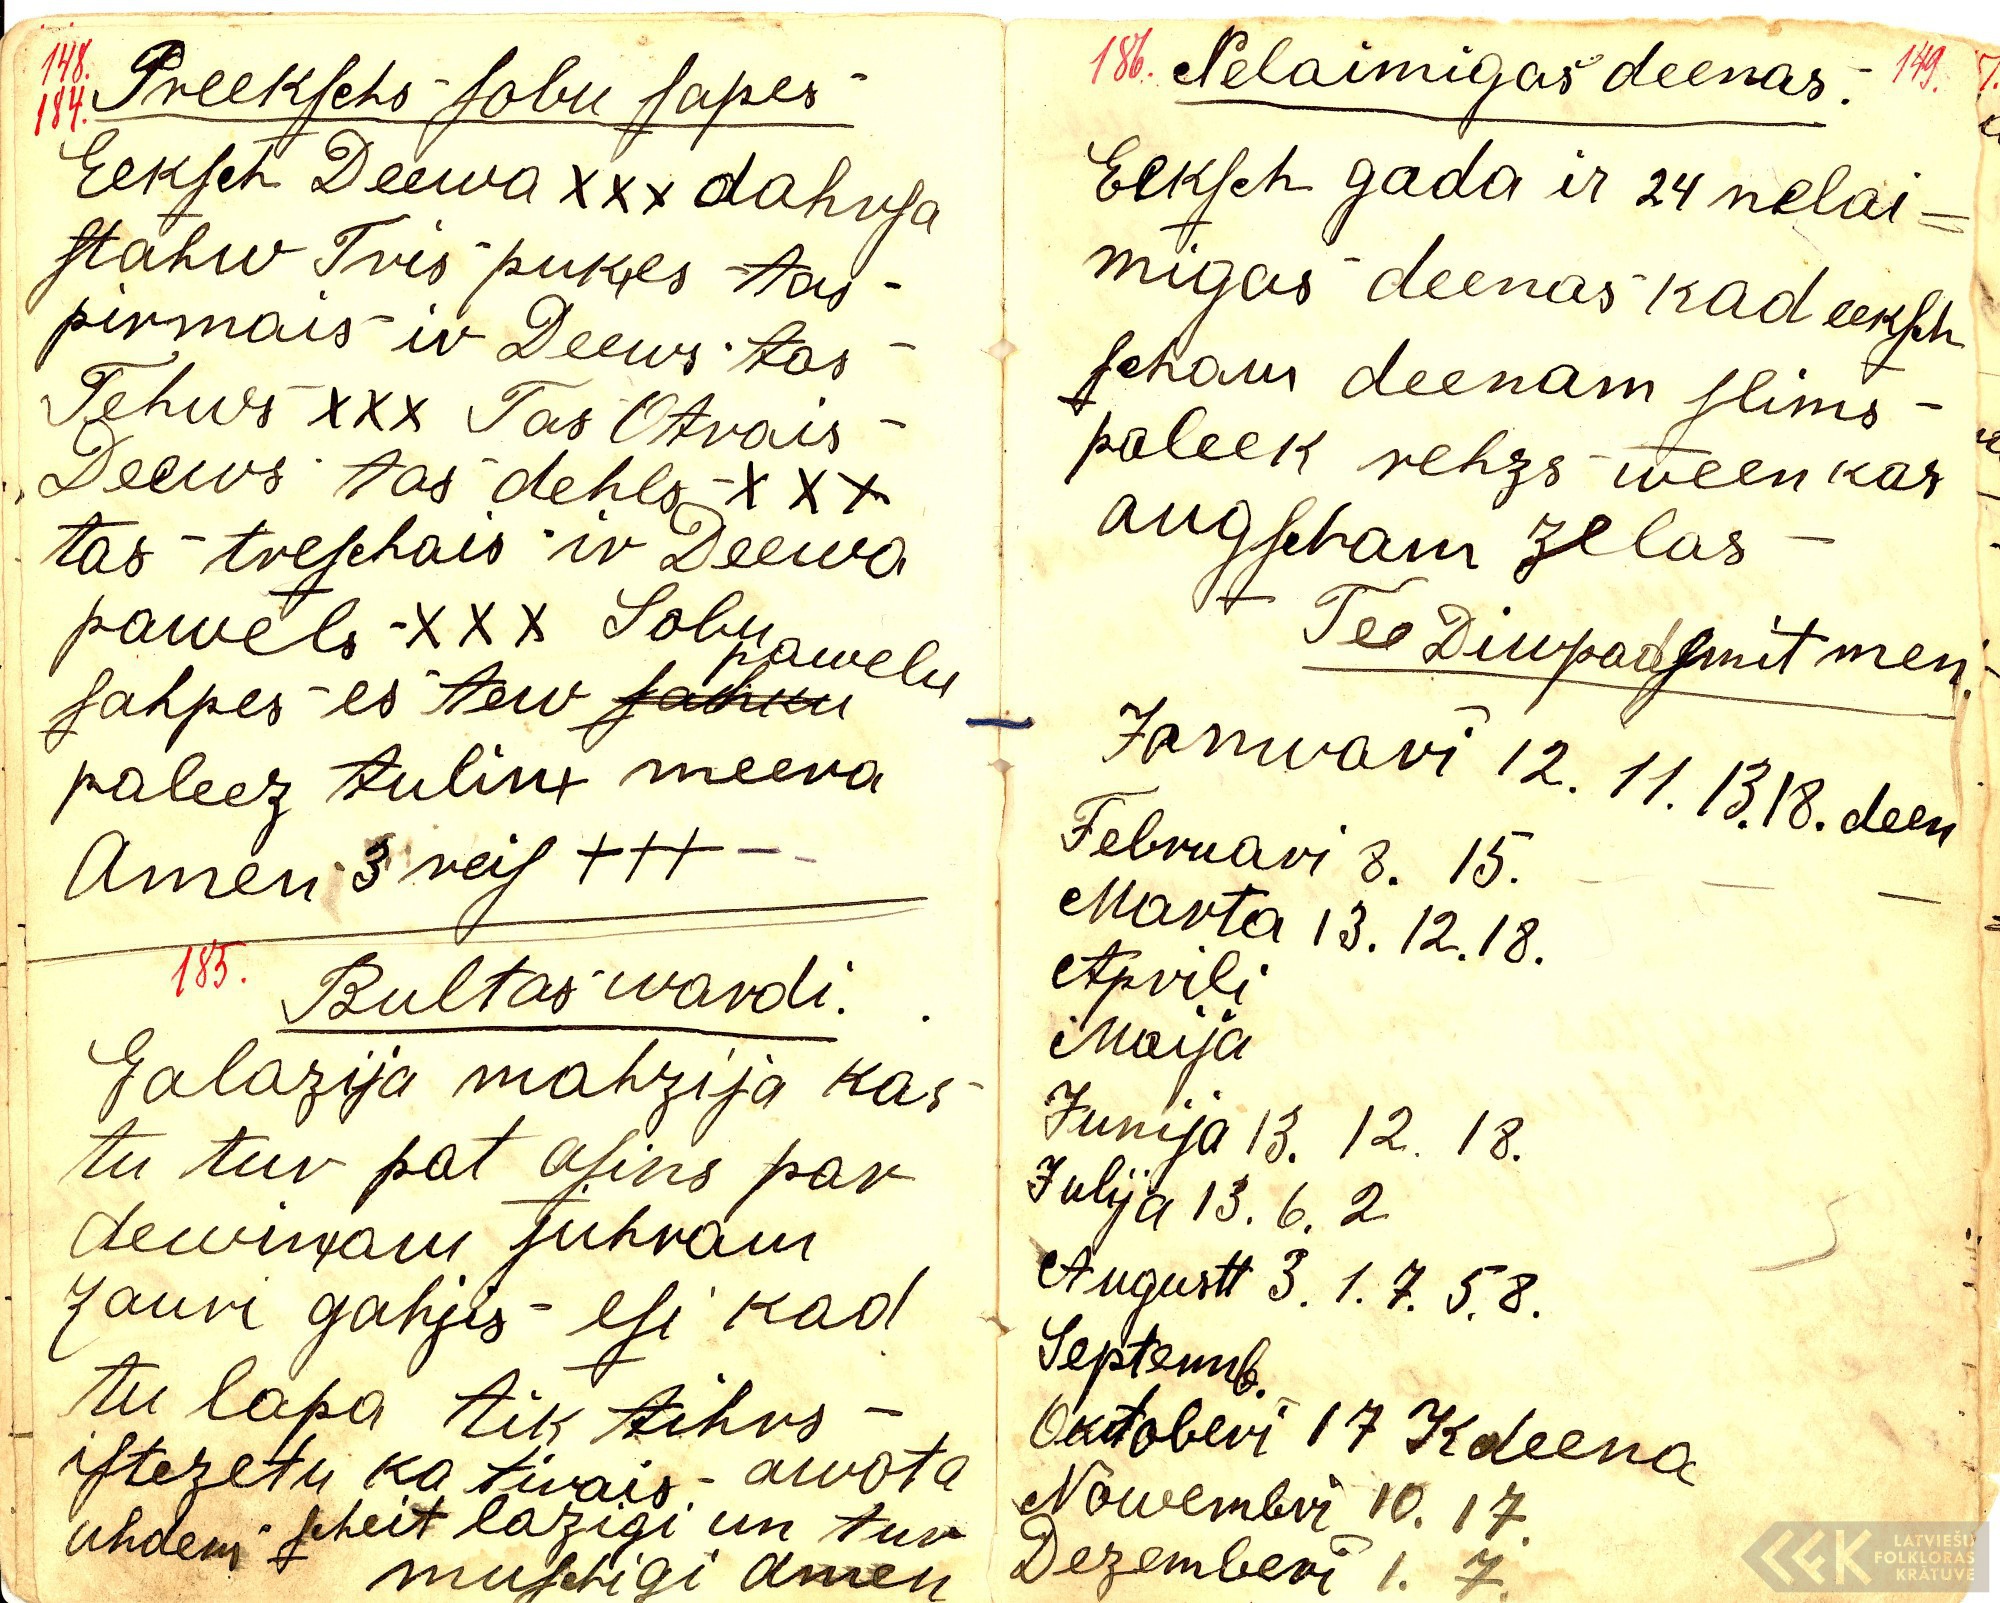 148.
184. Preekſchs ſobu ſapes
Eekſch Deewa xxx dahrſa
ſtahw Tris pukes tas
pirmais ir Deews tas
Tehws xxx Tas Otrais
Deews tas dehls xxx
tas treſchais ir Deewa
pawels xxx Sobu
pawelu
ſahpes es tew
paleez tulin meera
Amen 3 reiſ +++
185.
Bultas wardi.
Galazija mahzija kas
tu tur pat aſins par
dewiņam juhram
zauri gahjis eſi kad
tu lapa tik tihrs
iſtezetu ka tirais awota
uhdens ſcheit lazigi un tur
muſchigi amen
186. Nelaimigas deenas. 149.
Eekſch gada ir 24 nelai=
migas deenas kad eekſch
ſcham deenam ſlims
paleek rehzs ween kas
augſcham zelas
Tee Diwpadſmit men.
Januari 12. 11. 13. 18. deen
Februari 8. 15.
Marta 13. 12. 18.
Aprili
Maija
Junija 13. 12. 18.
Julija 13. 6. 2
Augustt 3. 1. 7. 5. 8.
Septemb.
Oktoberi 17 K deena
Nowembri 10. 17.
Dezemberi 1. 7.
LATVIEŠU
FOLKLORAS
KRĀTUVE